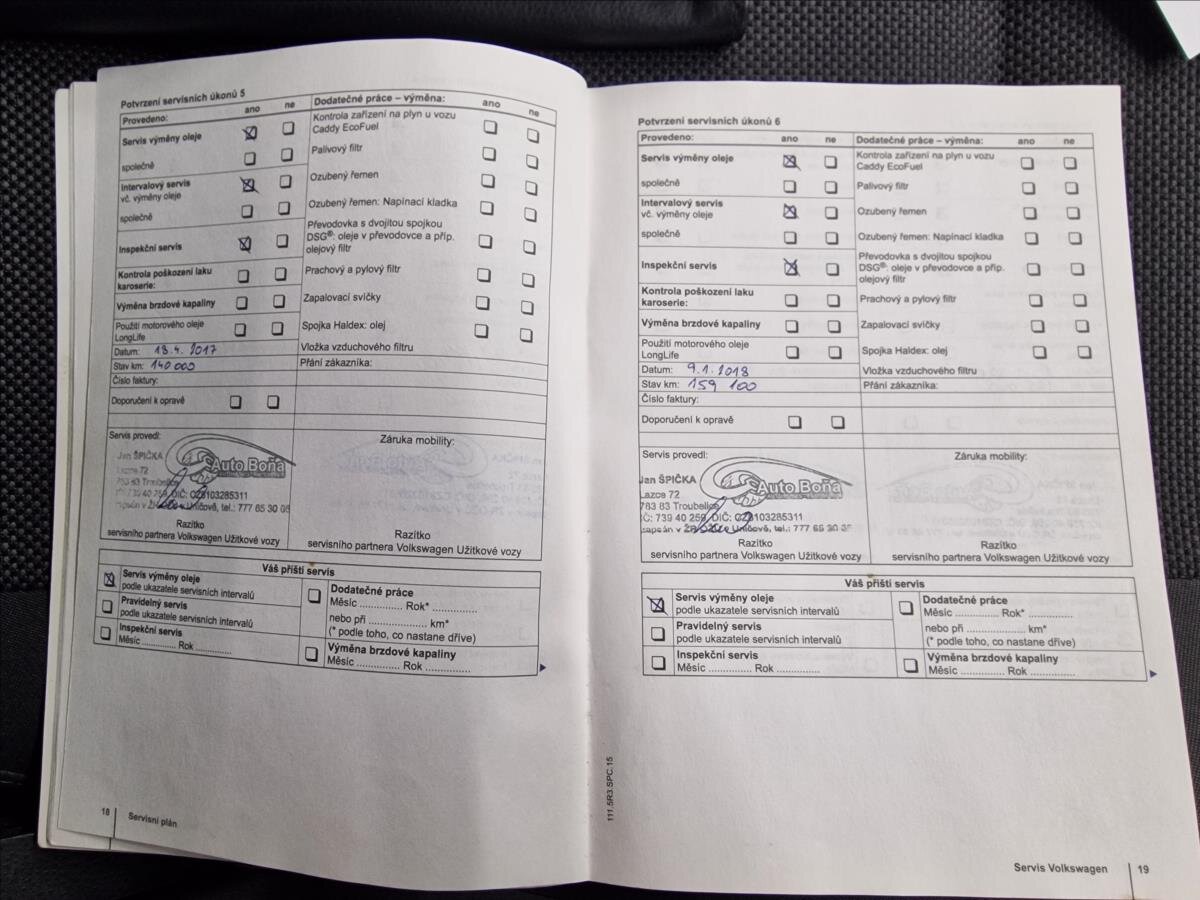 Potvrzení servisních úkonů 5
Provedeno: ano ne Dodatečné práce – výměna: ano ne
Servis výměny oleje
Kontrola zařízení na plyn u vozu
Caddy EcoFuel
společně
Palivový filtr
Intervalový servis
vč. výměny oleje
Ozubený řemen
společně
Ozubený řemen: Napínací kladka
Inspekční servis
Převodovka s dvojitou spojkou
DSG®: oleje v převodovce a příp.
olejový filtr
Kontrola poškození laku
karoserie:
Prachový a pylový filtr
Výměna brzdové kapaliny
Zapalovací svíčky
Použití motorového oleje
LongLife
Spojka Haldex: olej
Datum: 18.4.2017
Vložka vzduchového filtru
Stav km: 140 000
Přání zákazníka:
Číslo faktury:
Doporučení k opravě
Servis provedl:
Záruka mobility:
Jan ŠPIČKA
Auto Boňa
Lazce 72
783 83 Troubelice
IČ: 739 40 259, DIČ: CZ8103285311
Uničově, tel.: 777 65 30
Razítko
servisního partnera Volkswagen Užitkové vozy
Razítko
servisního partnera Volkswagen Užitkové vozy
Váš příští servis
Servis výměny oleje
podle ukazatele servisních intervalů
Pravidelný servis
podle ukazatele servisních intervalů
Inspekční servis
Měsíc .............. Rok ...............
Dodatečné práce
Měsíc ............... Rok* ...............
nebo při .................... km*
(* podle toho, co nastane dříve)
Výměna brzdové kapaliny
Měsíc ............... Rok ...............
18 Servisní plán
Potvrzení servisních úkonů 6
Provedeno: ano ne Dodatečné práce – výměna: ano ne
Servis výměny oleje
Kontrola zařízení na plyn u vozu
Caddy EcoFuel
společně
Palivový filtr
Intervalový servis
vč. výměny oleje
Ozubený řemen
společně
Ozubený řemen: Napínací kladka
Inspekční servis
Převodovka s dvojitou spojkou
DSG®: oleje v převodovce a příp.
olejový filtr
Kontrola poškození laku
karoserie:
Prachový a pylový filtr
Výměna brzdové kapaliny
Zapalovací svíčky
Použití motorového oleje
LongLife
Spojka Haldex: olej
Datum: 9.1.2018
Vložka vzduchového filtru
Stav km: 159 100
Přání zákazníka:
Číslo faktury:
Doporučení k opravě
Servis provedl:
Záruka mobility:
Jan ŠPIČKA
Auto Boňa
Lazce 72
783 83 Troubelice
IČ: 739 40 259, DIČ: CZ8103285311
Uničově, tel.: 777 65 30
Razítko
servisního partnera Volkswagen Užitkové vozy
Razítko
servisního partnera Volkswagen Užitkové vozy
Váš příští servis
Servis výměny oleje
podle ukazatele servisních intervalů
Pravidelný servis
podle ukazatele servisních intervalů
Inspekční servis
Měsíc .............. Rok ...............
Dodatečné práce
Měsíc ............... Rok* ...............
nebo při .................... km*
(* podle toho, co nastane dříve)
Výměna brzdové kapaliny
Měsíc ............... Rok ...............
111.5R3.SPC.15
Servis Volkswagen 19